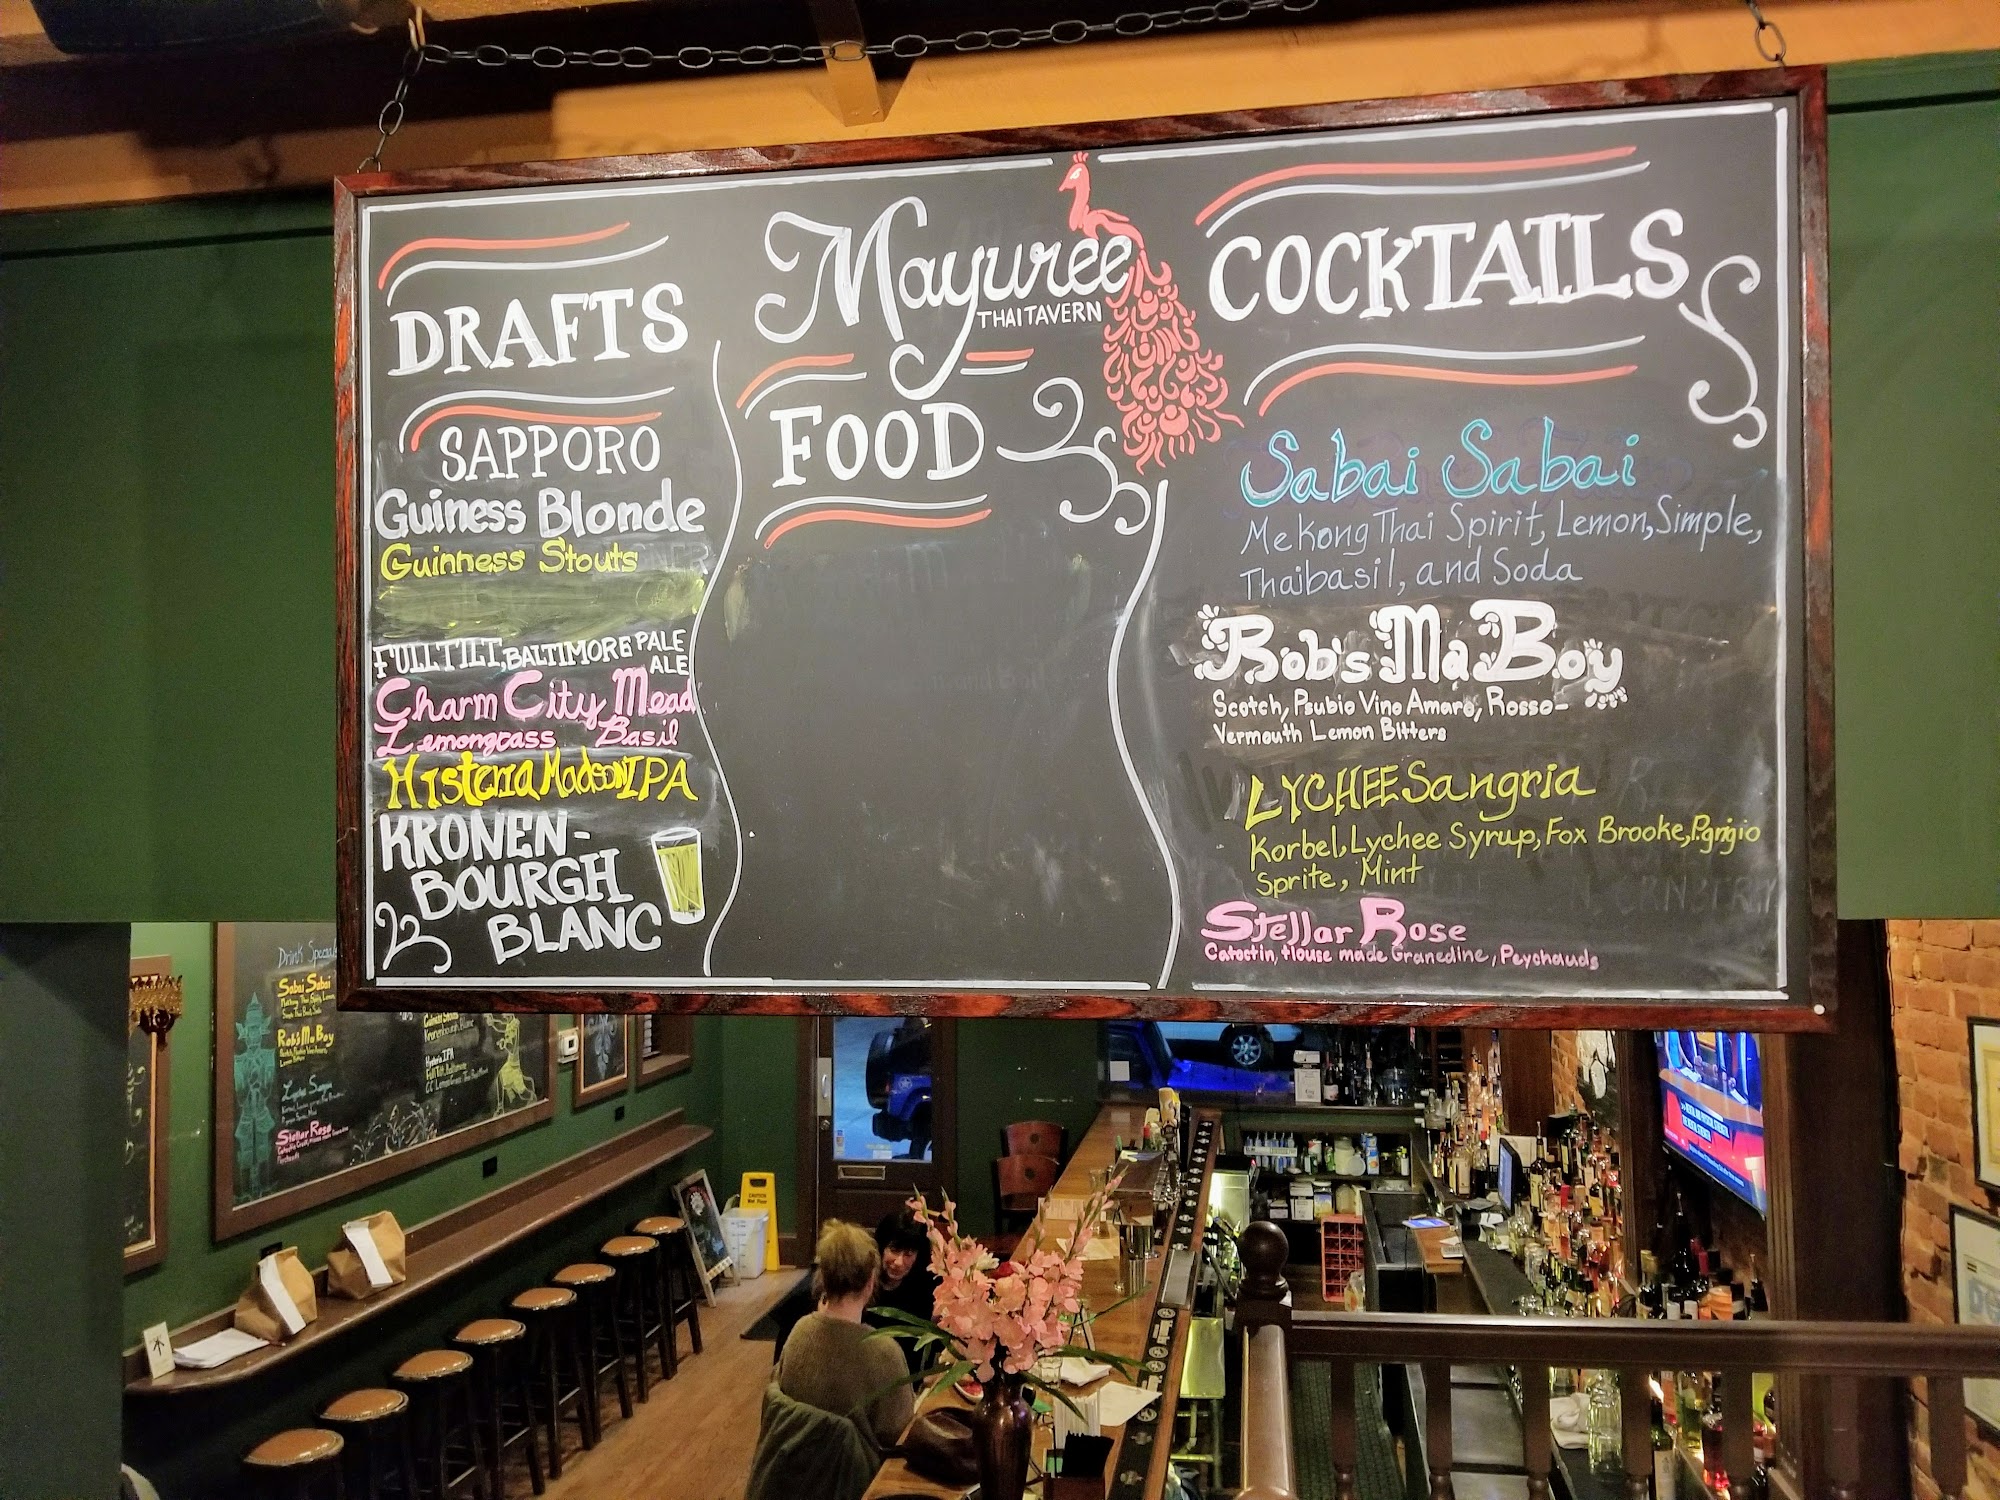 DRAFTS
SAPPORO
Guiness Blonde
Guinness Stouts
FULL TILT, BALTIMORE PALE
ALE
Charm City Mead
Lemongrass Basil
Histeria Madson IPA
KRONEN-
BOURGH
BLANC
Mayuree
THAI TAVERN
FOOD
COCKTAILS
Sabai Sabai
Mekong Thai Spirit, Lemon, Simple,
Thaibasil, and Soda
Rob's Ma Boy
Scotch, Psubio Vino Amaro, Rosso-
Vermouth Lemon Bitters
LYCHEE Sangria
Korbel, Lychee Syrup, Fox Brooke, P.grigio
Sprite, Mint
Stellar Rose
Catoctin, House made Granedine, Peychauds
Drink Specials
Sabai Sabai
Rob's Ma Boy
Stellar Rose
Kronenbourgh, Blanc
CAUTION